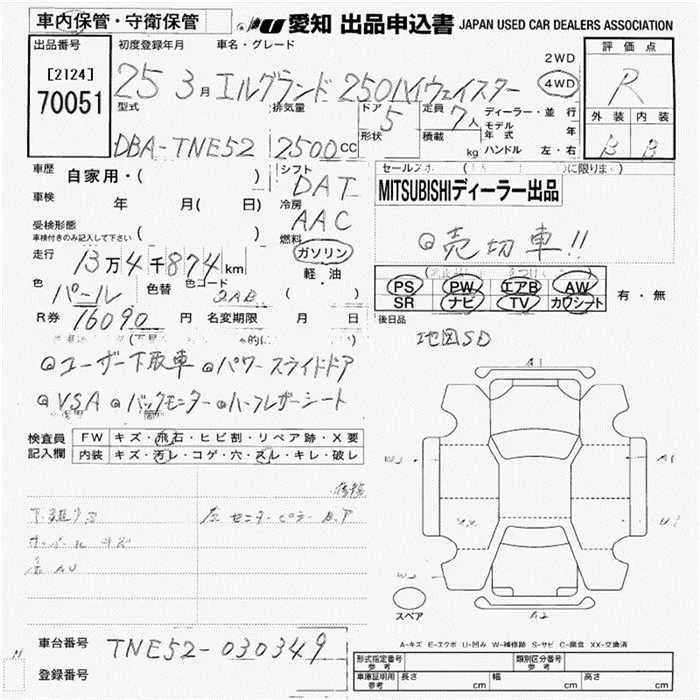 車内保管・守衛保管
JU 愛知 出品申込書 JAPAN USED CAR DEALERS ASSOCIATION
出品番号 初度登録年月 車名・グレード 2WD 評価点
[2124] 25 3月 エルグランド 250ハイウェイスター 4WD R
70051
型式 排気量 ドア 5 定員 7人 ディーラー・並行 外装 内装
形状 積載 kg モデル年式 年
DBA-TNE52 2500cc ハンドル 左・右 B B
車歴 自家用・( ) シフト DAT
MITSUBISHIディーラー出品
車検 年 月( 日) 冷房 AAC
受検形態 ( )
車検付きのみ記入して下さい
◎売切車!!
走行 13万4千874km 燃料 ガソリン
軽・油
( )
色 パール 色替 色コード 2AB
PS PW エアB AW 有・無
SR ナビ TV カワシート
R券 16090円 名変期限 月 日 後日品
地図SD
◎ユーザー下取車 ◎パワースライドドア
◎VSA ◎バックモニター ◎ハーフレザーシート
検査員記入欄 FW キズ・飛石・ヒビ割・リペア跡・X要
内装 キズ・汚レ・コゲ・穴・スレ・キレ・破レ
A1
左センターピラー
A2
スペア
A-キズ E-エクボ U-凹み W-補修跡 S-サビ C-腐食 XX-交換済
車台番号 TNE52-030349
登録番号
形式指定番号 参考 類別区分番号 参考
車庫証明用 参考 長さ cm 幅 cm 高さ cm